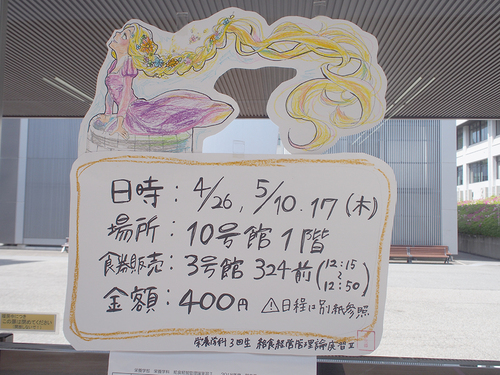 日時：4/26, 5/10.17（木）
場所：10号館1階
食券販売：3号館 324前（12:15〜12:50）
金額：400円 ⚠日程は別紙参照
栄養学科 3回生 給食経営管理論実習Ⅱ